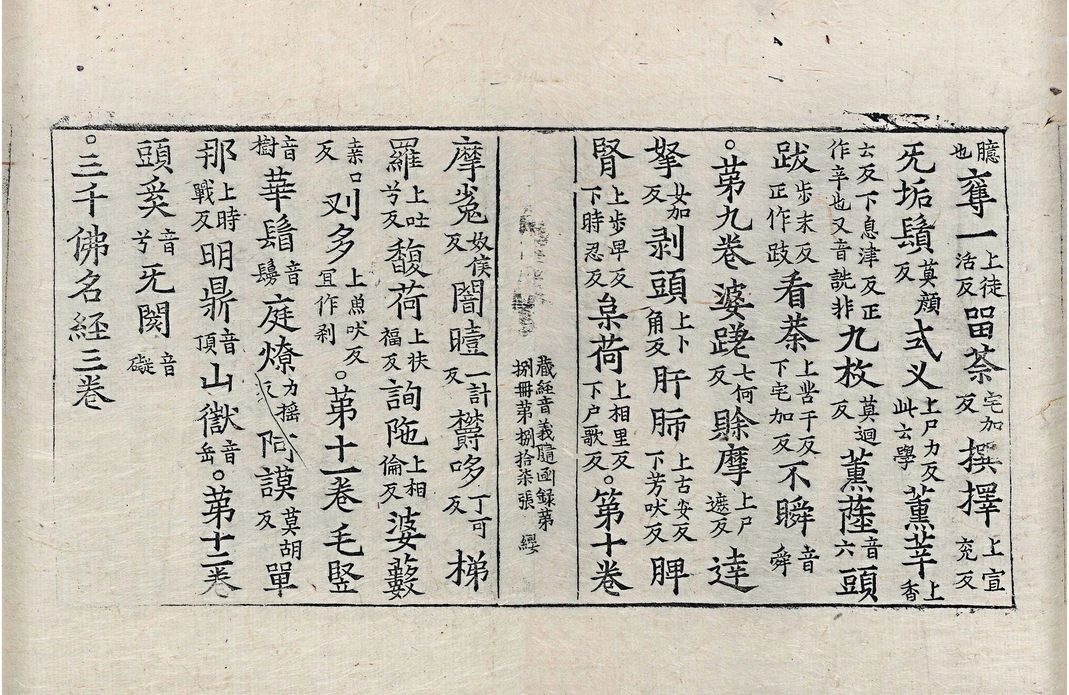 臆也奪一上徒活反㽞荼宅加反撰擇上宣兖反
旡垢鬚莫顔反式义上尸力反此云學薰莘上香
云反下息津反正作辛也又音詵非九枚莫迴反薰䕘音六頭
跋步末反正作跂看荼上苦干反下宅加反不瞬音舜
。苐九卷婆蹉七何反賒摩上尸遮反逹
拏女加反剥頭上卜角反肝肺上古安反下芳吠反脾
腎上步早反下時忍反枲荷上相里反下户歌反。苐十卷
藏經音義隨函録苐
捌冊苐捌拾柒張 纓
摩㝹奴侯反闇曀一計反欝哆丁可反梯
羅上吐兮反馥荷上扶福反詢陁上相倫反婆藪
桒口反刘多上魚吠反冝作刹。苐十一卷毛竪
音樹華鬘音鬘庭燎力摇反阿謨莫胡反單
那上時戰反明鼎音頂山嶽音岳。苐十二卷
頭奚音兮旡閡音礙
。三千佛名經三卷